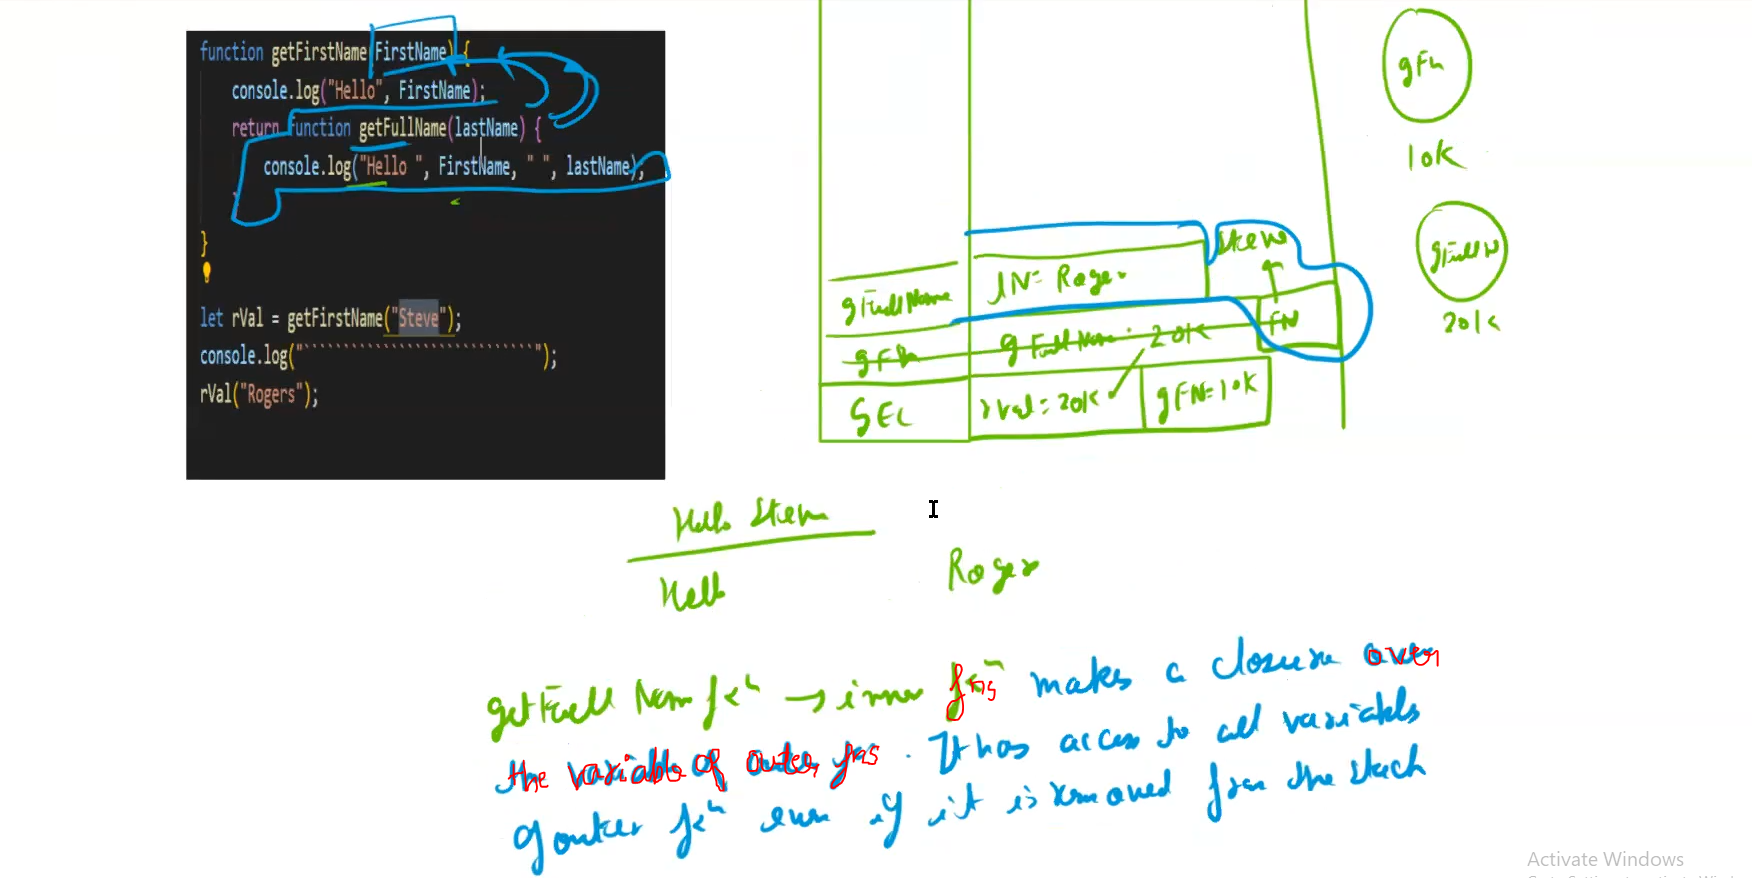 function getFirstName(FirstName) {
console.log("Hello", FirstName);
return function getFullName(lastName) {
console.log("Hello ", FirstName, " ", lastName);
}
let rVal = getFirstName("Steve");
console.log("`````````````````````````````");
rVal("Rogers");
gFn
10K
gFullN
20K
Steve
gFullName
lN = Roger
FN
gFn
gFullName : 20K
GEC
rVal = 20K
gFN = 10K
Hello Steve
Hello
Roger
getFullName fxn → inner fns makes a closure over
the variable of outer fns . It has access to all variables
of outer fxn even if it is removed from the stack
Activate Windows